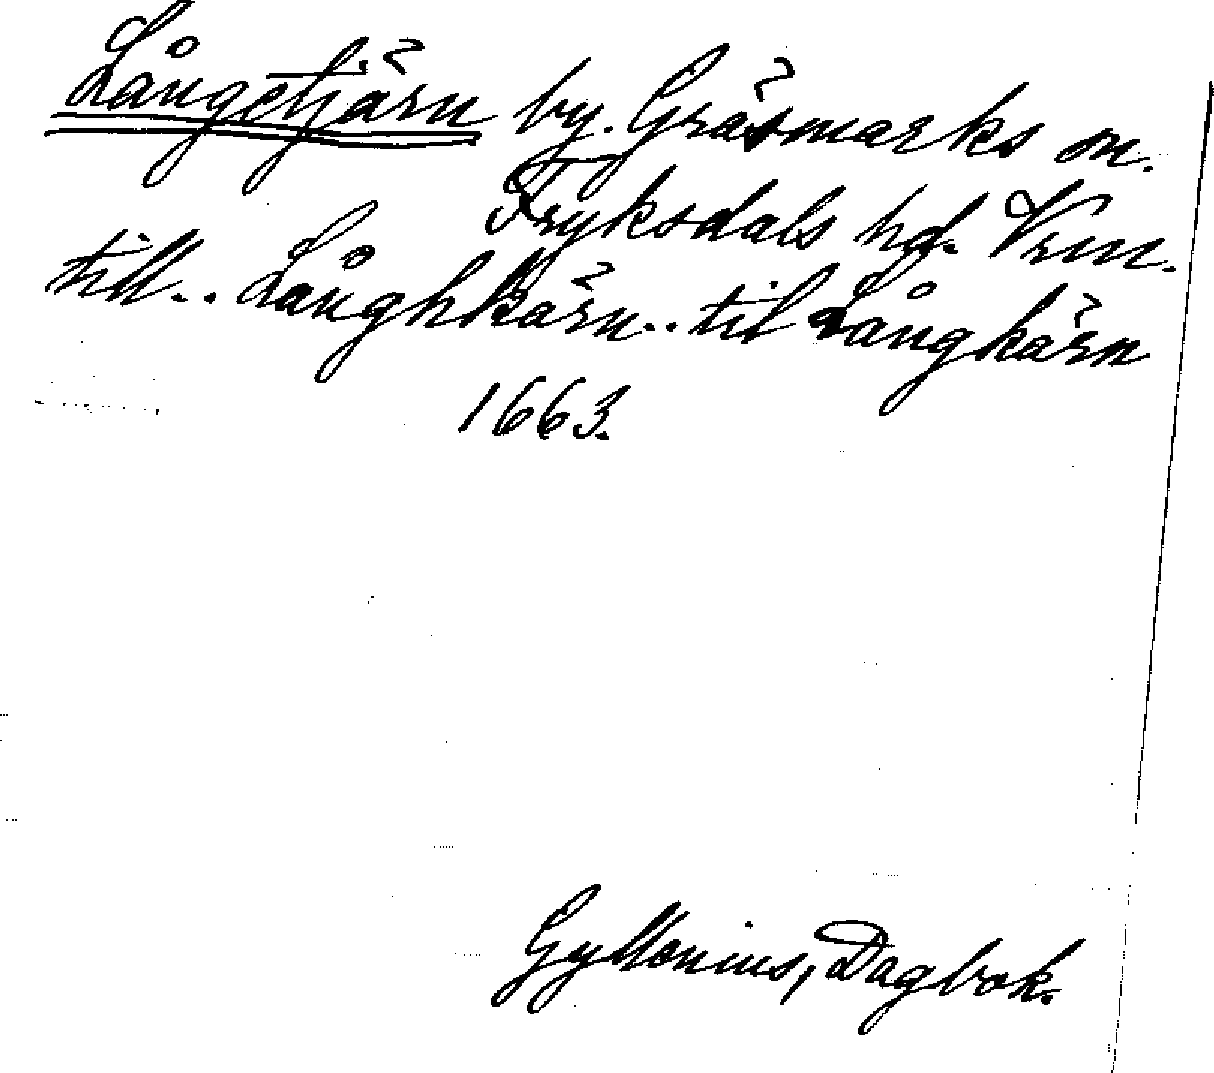 Långetjärn by. Gräsmarks sn.
Fryksdals hd. Vrm.
till.. Långhkärn.. til Långkärn
1663.
Gyllenius, Dagbok.